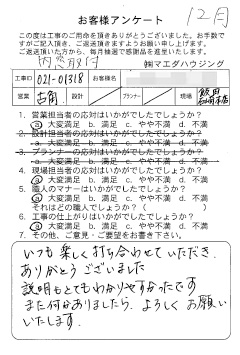 12月
お客様アンケート
この度は工事のご用命を頂きありがとうございました。お手数で
すがご記入頂き、ご返送頂きますようお願い申し上げます。
ご返送頂いた方から、毎月抽選で感謝品を進呈いたします。
内窓取付
㈱マエダハウジング
工事ID 021-01318 お客様名
営業 古角 設計 プランナー 現場
1. 営業担当者の応対はいかがでしたでしょうか?
a 大変満足 b. 満足 c. やや不満 d. 不満
2. 設計担当者の応対はいかがでしたでしょうか?
a. 大変満足 b. 満足 c. やや不満 d. 不満
3. プランナーの応対はいかがでしたでしょうか?
a. 大変満足 b. 満足 c. やや不満 d. 不満
4. 現場担当者の応対はいかがでしたでしょうか?
a 大変満足 b. 満足 c. やや不満 d. 不満
5. 職人のマナーはいかがでしたでしょうか?
a 大変満足 b. 満足 c. やや不満 d. 不満
それはどの職人でしょうか(
6. 工事の仕上がりはいかがでしたでしょうか?
a 大変満足 b. 満足 c. やや不満 d. 不満
7. その他、ご意見・ご要望をお書き下さい。
いつも楽しく打ち合わせていただき、
ありがとうございました
説明もとてもわかりやすかったです
また何かありましたら、よろしくお願い
いたします。